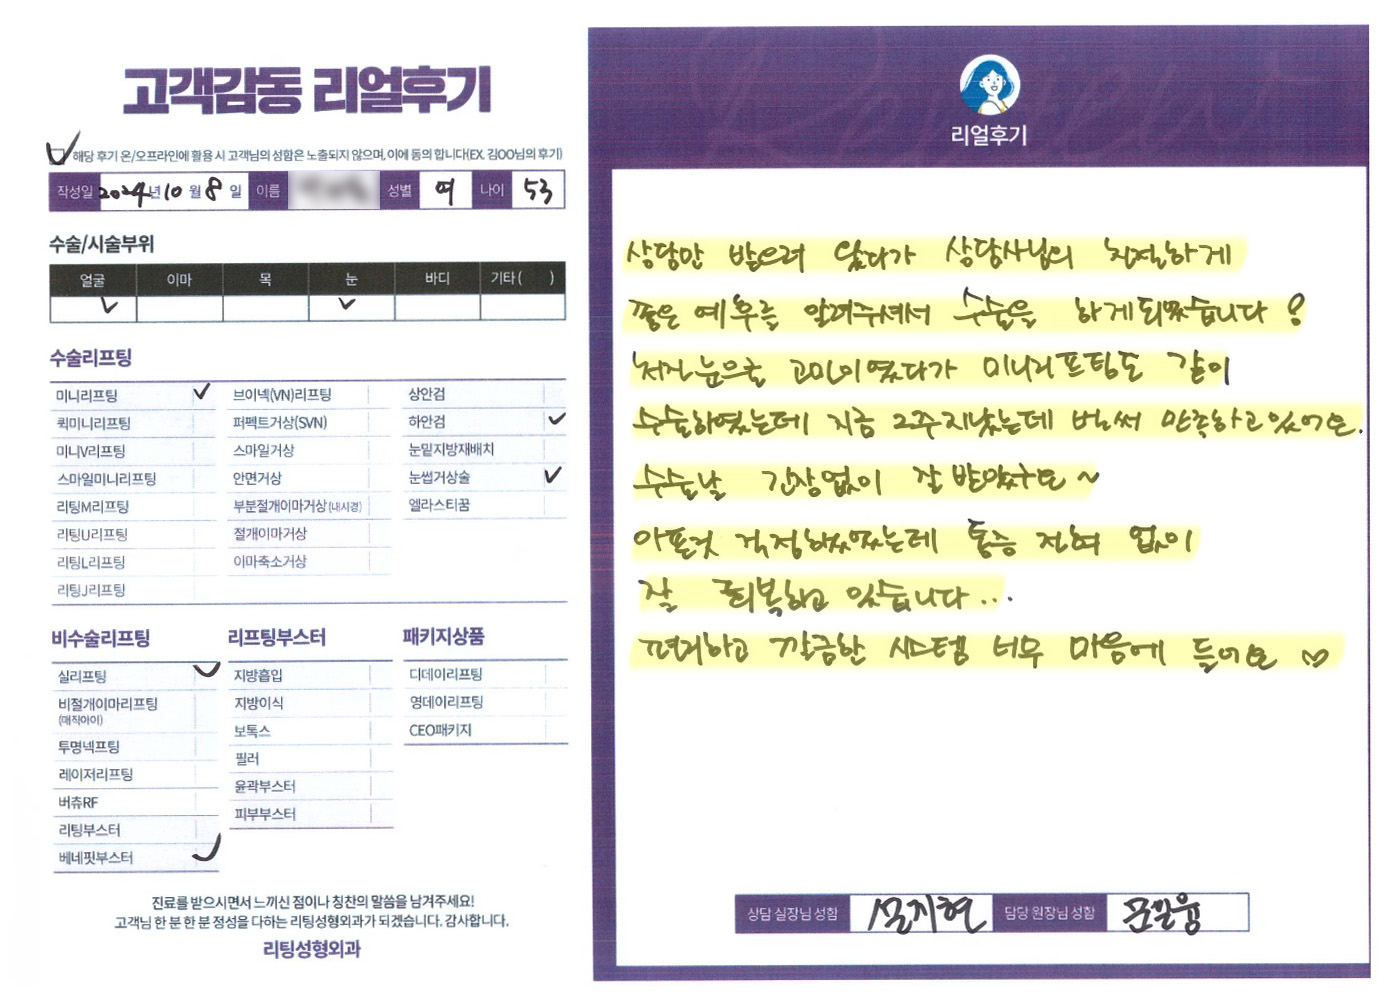 고객감동 리얼후기
해당 후기 온/오프라인에 활용 시 고객님의 성함은 노출되지 않으며, 이에 동의 합니다(EX. 김OO님의 후기)
작성일 2024년 10월 8일 이름 성별 여 나이 53
수술/시술부위
얼굴 이마 목 눈 바디 기타( )
수술리프팅
미니리프팅 브이넥(VN)리프팅 상안검
퀵미니리프팅 퍼펙트거상(SVN) 하안검
미니V리프팅 스마일거상 눈밑지방재배치
스마일미니리프팅 안면거상 눈썹거상술
리팅M리프팅 부분절개이마거상(내시경) 엘라스티꿈
리팅U리프팅 절개이마거상
리팅L리프팅 이마축소거상
리팅J리프팅
비수술리프팅 리프팅부스터 패키지상품
실리프팅 지방흡입 디데이리프팅
비절개이마리프팅 지방이식 영데이리프팅
(매직아이)
보톡스 CEO패키지
투명넥프팅 필러
레이저리프팅 윤곽부스터
버츄RF 피부부스터
리팅부스터
베네핏부스터
진료를 받으시면서 느끼신 점이나 칭찬의 말씀을 남겨주세요!
고객님 한 분 한 분 정성을 다하는 리팅성형외과가 되겠습니다. 감사합니다.
리팅성형외과
리얼후기
상담만 받으러 왔다가 상담사님의 친절하게
좋은 예후를 알려주셔서 수술을 하게되었습니다!
처진눈으로 고민이였다가 미니리프팅도 같이
수술하였는데 지금 2주지났는데 벌써 만족하고있어요.
수술날 긴장없이 잘 받았구요~
아픈것 걱정하였었는데 통증 전혀 없이
잘 회복하고 있습니다...
편리하고 깔끔한 시스템 너무 마음에 들어요 ♡
상담 실장님 성함 설지현 담당 원장님 성함 문일웅